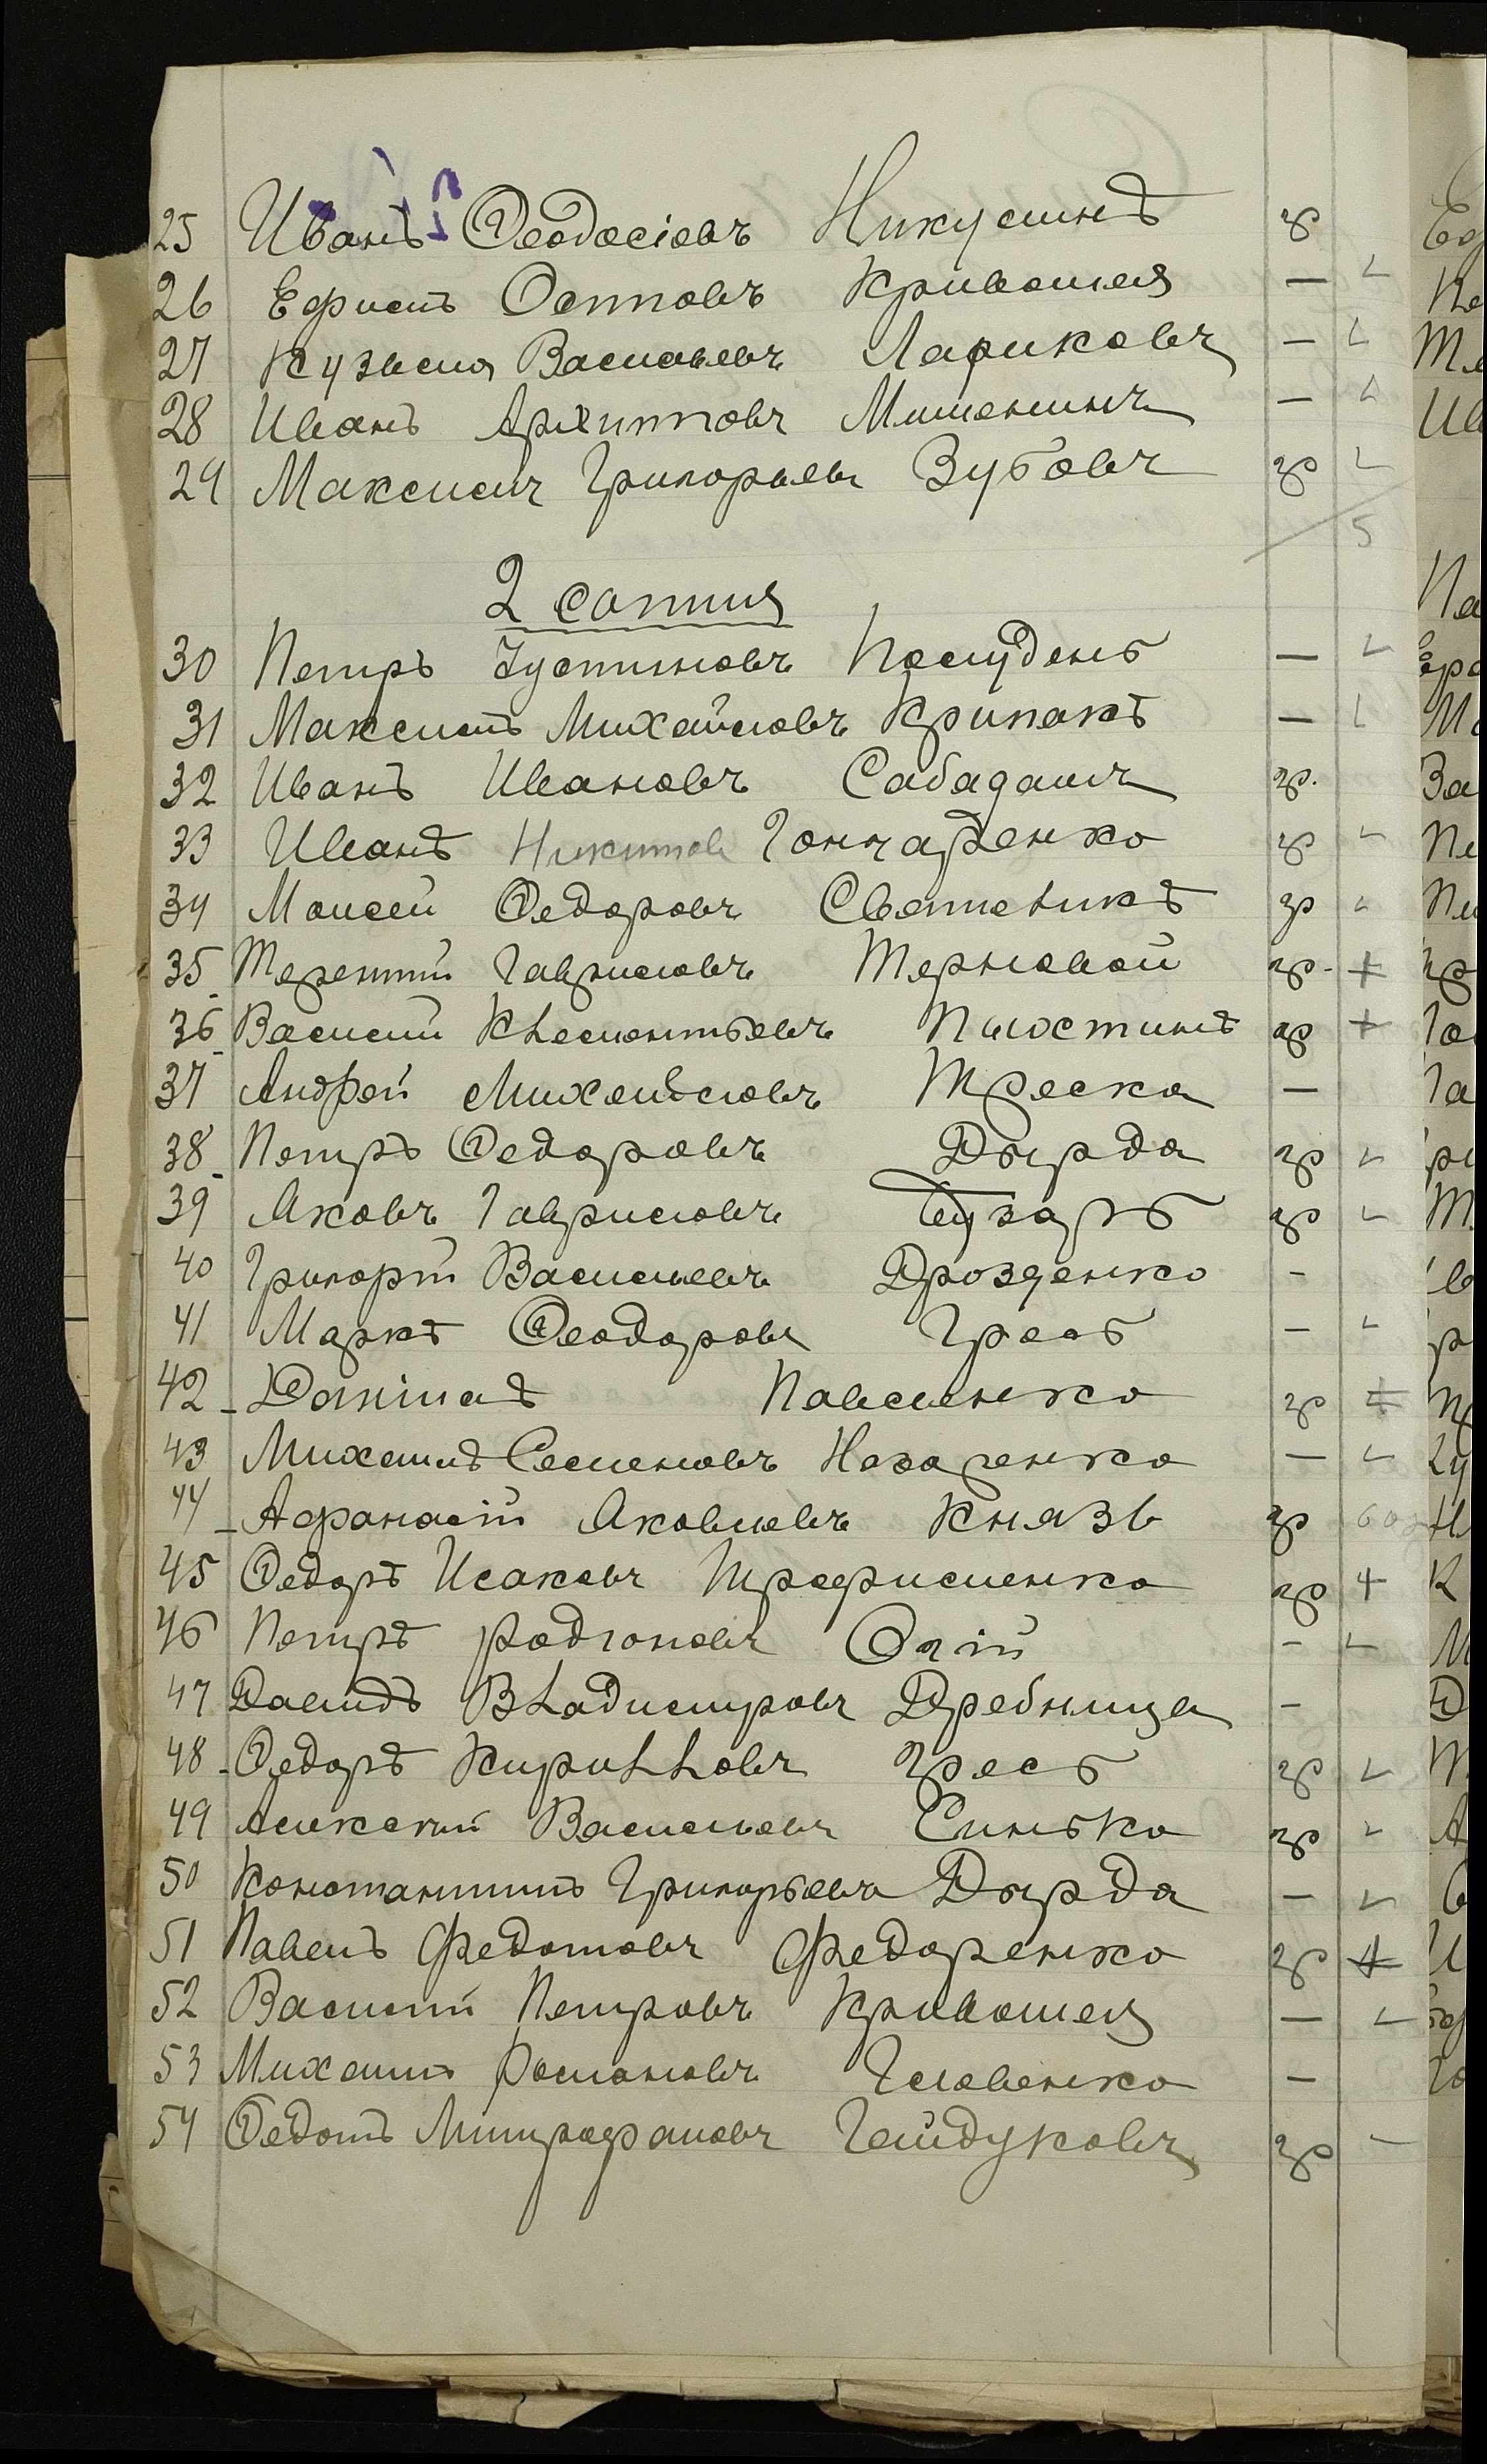 25 Иванъ Ѳеодосіевъ Никулинъ гр
26 Ефимъ Осиповъ Кривошея —
27 Кузьма Васильевъ Лариковъ —
28 Иванъ Архиповъ Мишенинъ —
29 Максимъ Григорьевъ Зубовъ гр
5
2 сотня
30 Петръ Іустиновъ —
31 Максимъ Михайловъ Крипакъ —
32 Иванъ Ивановъ Сабадашъ гр.
33 Иванъ Никитовъ Гончаренко гр
34 Моисей Ѳедоровъ Светличкъ гр
35 Терентій Гавриловъ Терновой гр. +
36 Василій Клементьевъ Пластинъ гр +
37 Андрей Михайловъ Треска —
38 Петръ Ѳедоровъ Дырда гр
39 Яковъ Гавриловъ гр
40 Григорій Васильевъ Дрозденко -
41 Маркъ Ѳеодоровъ Гресь -
42 Даніилъ Павленко гр +
43 Михаилъ Семеновъ Назаренко —
44 Афанасій Яковлевъ Князь гр
45 Ѳедоръ Исаковъ Трофименко гр +
46 Петръ Родіоновъ -
47 Давидъ Владимировъ Дребница -
48 Ѳедоръ Кирилловъ Гресь гр
49 Алексѣй Васильевъ Синько гр
50 Константинъ Григорьевъ Дырда —
51 Павелъ Федотовъ Федоренко гр +
52 Василій Петровъ Кривошея —
53 Михаилъ Романовъ Головенко —
54 Ѳедотъ Митрофановъ Гайдуковъ гр